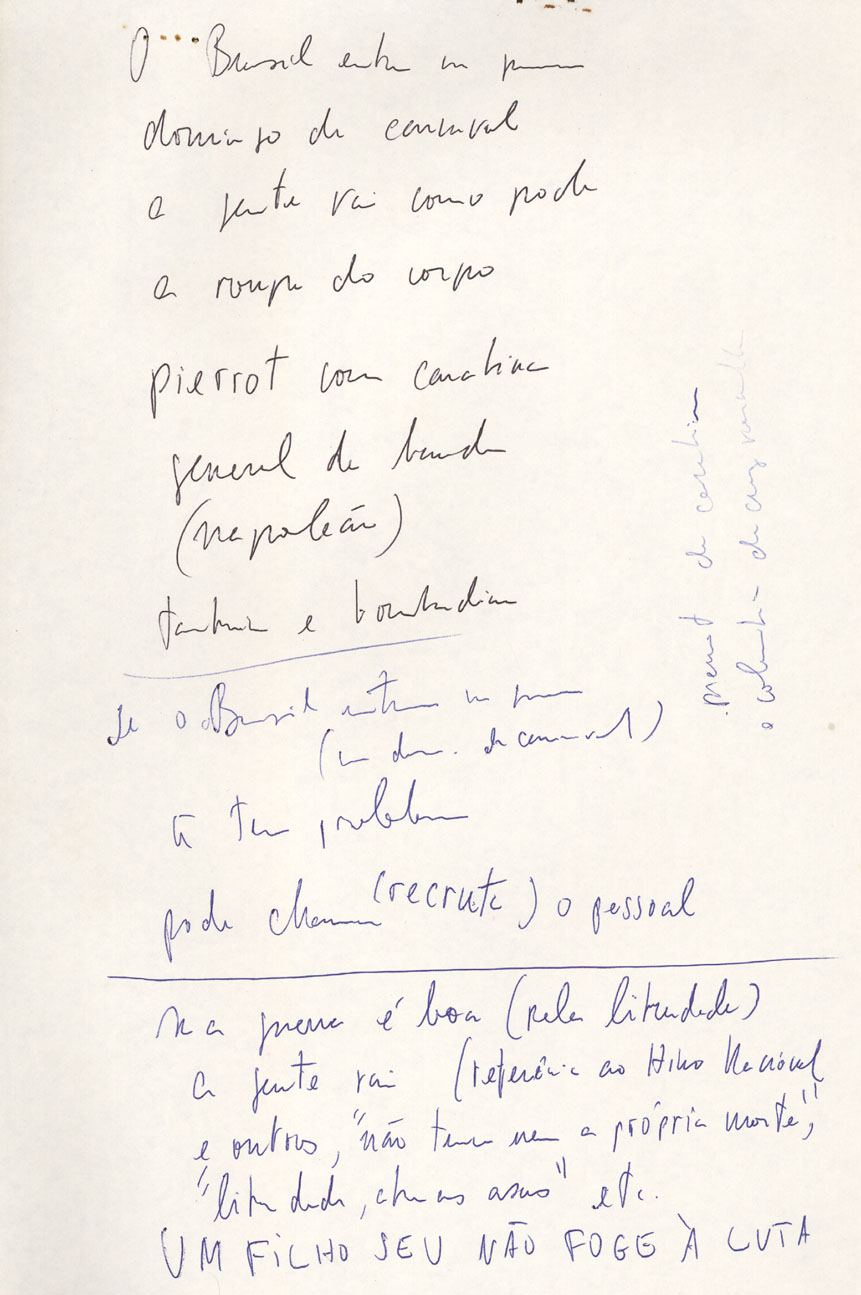 O Brasil entra na guerra
domingo de carnaval
a gente vai como pode
a roupa do corpo
pierrot com carabina
general de banda
(napoleão)
e bombardina
Se o Brasil entrar na guerra
(um dom. de carnaval)
tem problema
pode chamar (recruta) o pessoal
se a guerra é boa (pela liberdade)
a gente vai (referência ao Hino Nacional
e outros, "não teme nem a própria morte",
"liberdade, abre as asas" etc.
UM FILHO SEU NÃO FOGE À LUTA
pierrot de carabina
a colombina de cruz vermelha